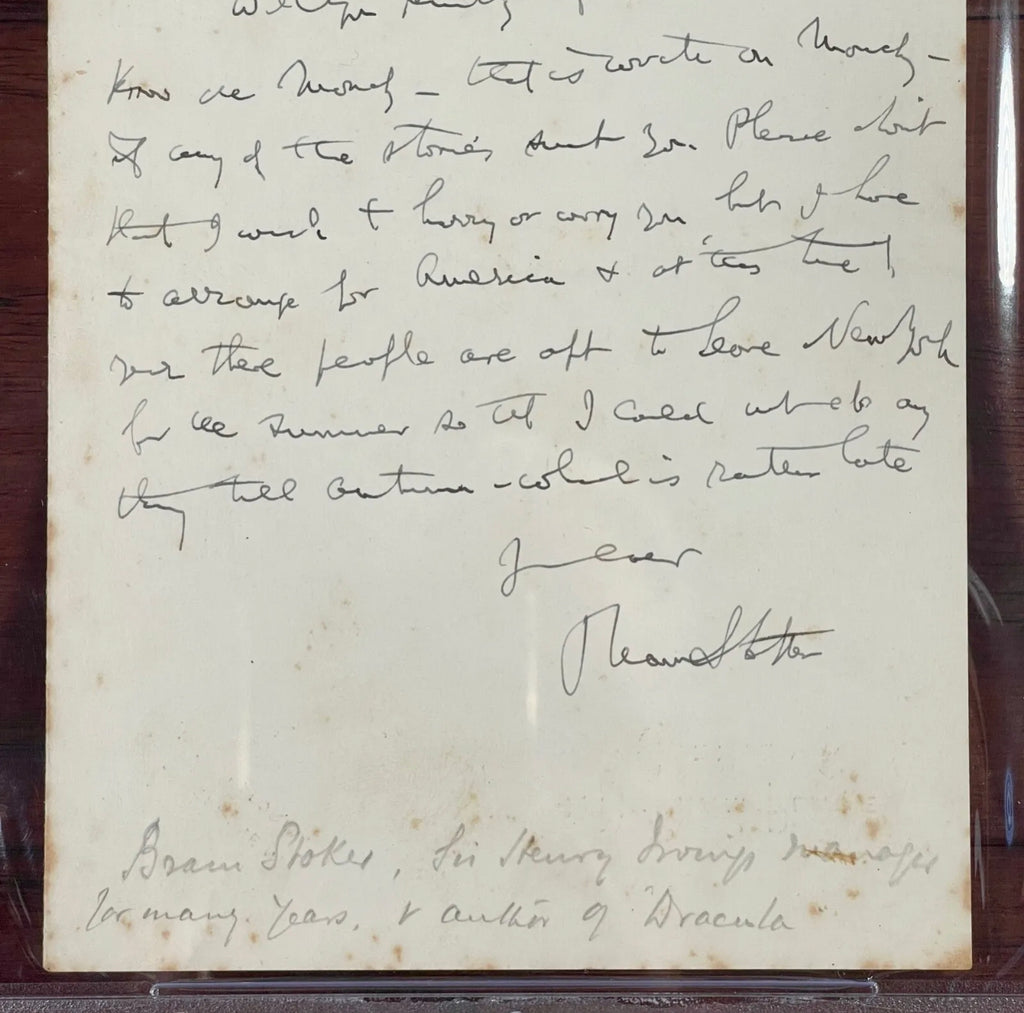 Will you kindly
know on Monday - that is write on Monday -
if any of the stories suit you. Please don't
think I wish to hurry or worry you, but I have
to arrange for America & at this time of
year these people are apt to leave New York
for the summer so that I could not do any
thing till autumn - which is rather late
Yours ever
Bram Stoker
Bram Stoker, Sir Henry Irving's manager
for many years, & author of "Dracula